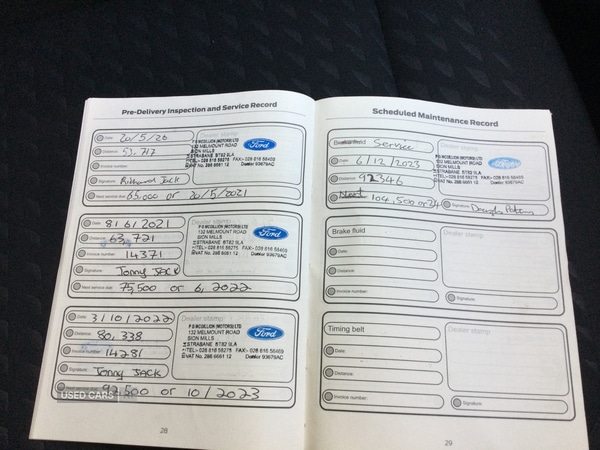 Pre-Delivery Inspection and Service Record
Date: 20/5/20
Distance: 53,717
Invoice number:
Signature: Jack
Next service due: 65,000 or 20/5/2021
Dealer stamp:
P G MCGILLION (MOTORS) LTD
132 MELMOUNT ROAD
SION MILLS
STRABANE BT82 9LA
TEL:- 028 816 58275 FAX:- 028 816 58469
VAT No. 286 6691 12 Dealer 93679AC
Ford
Date: 8/6/2021
Distance: 63,721
Invoice number: 14371
Signature: Jonny JACK
Next service due: 75,500 or 6, 2022
Dealer stamp:
P G MCGILLION (MOTORS) LTD
132 MELMOUNT ROAD
SION MILLS
STRABANE BT82 9LA
TEL:- 028 816 58275 FAX:- 028 816 58469
VAT No. 286 6691 12 Dealer 93679AC
Ford
Date: 31 10/2022
Distance: 80,338
Invoice number: 14281
Signature: Jonny JACK
Next service due: 92,500 or 10/2023
Dealer stamp:
P G MCGILLION (MOTORS) LTD
132 MELMOUNT ROAD
SION MILLS
STRABANE BT82 9LA
TEL:- 028 816 58275 FAX:- 028 816 58469
VAT No. 286 6691 12 Dealer 93679AC
Ford
USED CARS NI
28
Scheduled Maintenance Record
Brake fluid Service
Date: 6/12/2023
Distance: 92346
Next 104,500 or 24
Dealer stamp:
P G MCGILLION (MOTORS) LTD
132 MELMOUNT ROAD
SION MILLS
STRABANE BT82 9LA
TEL:- 028 816 58275 FAX:- 028 816 58469
VAT No. 286 6691 12 Dealer 93679AC
Ford
Signature:
Brake fluid
Date:
Distance:
Invoice number:
Dealer stamp:
Signature
Timing belt
Date:
Distance:
Invoice number:
Dealer stamp:
Signature
29